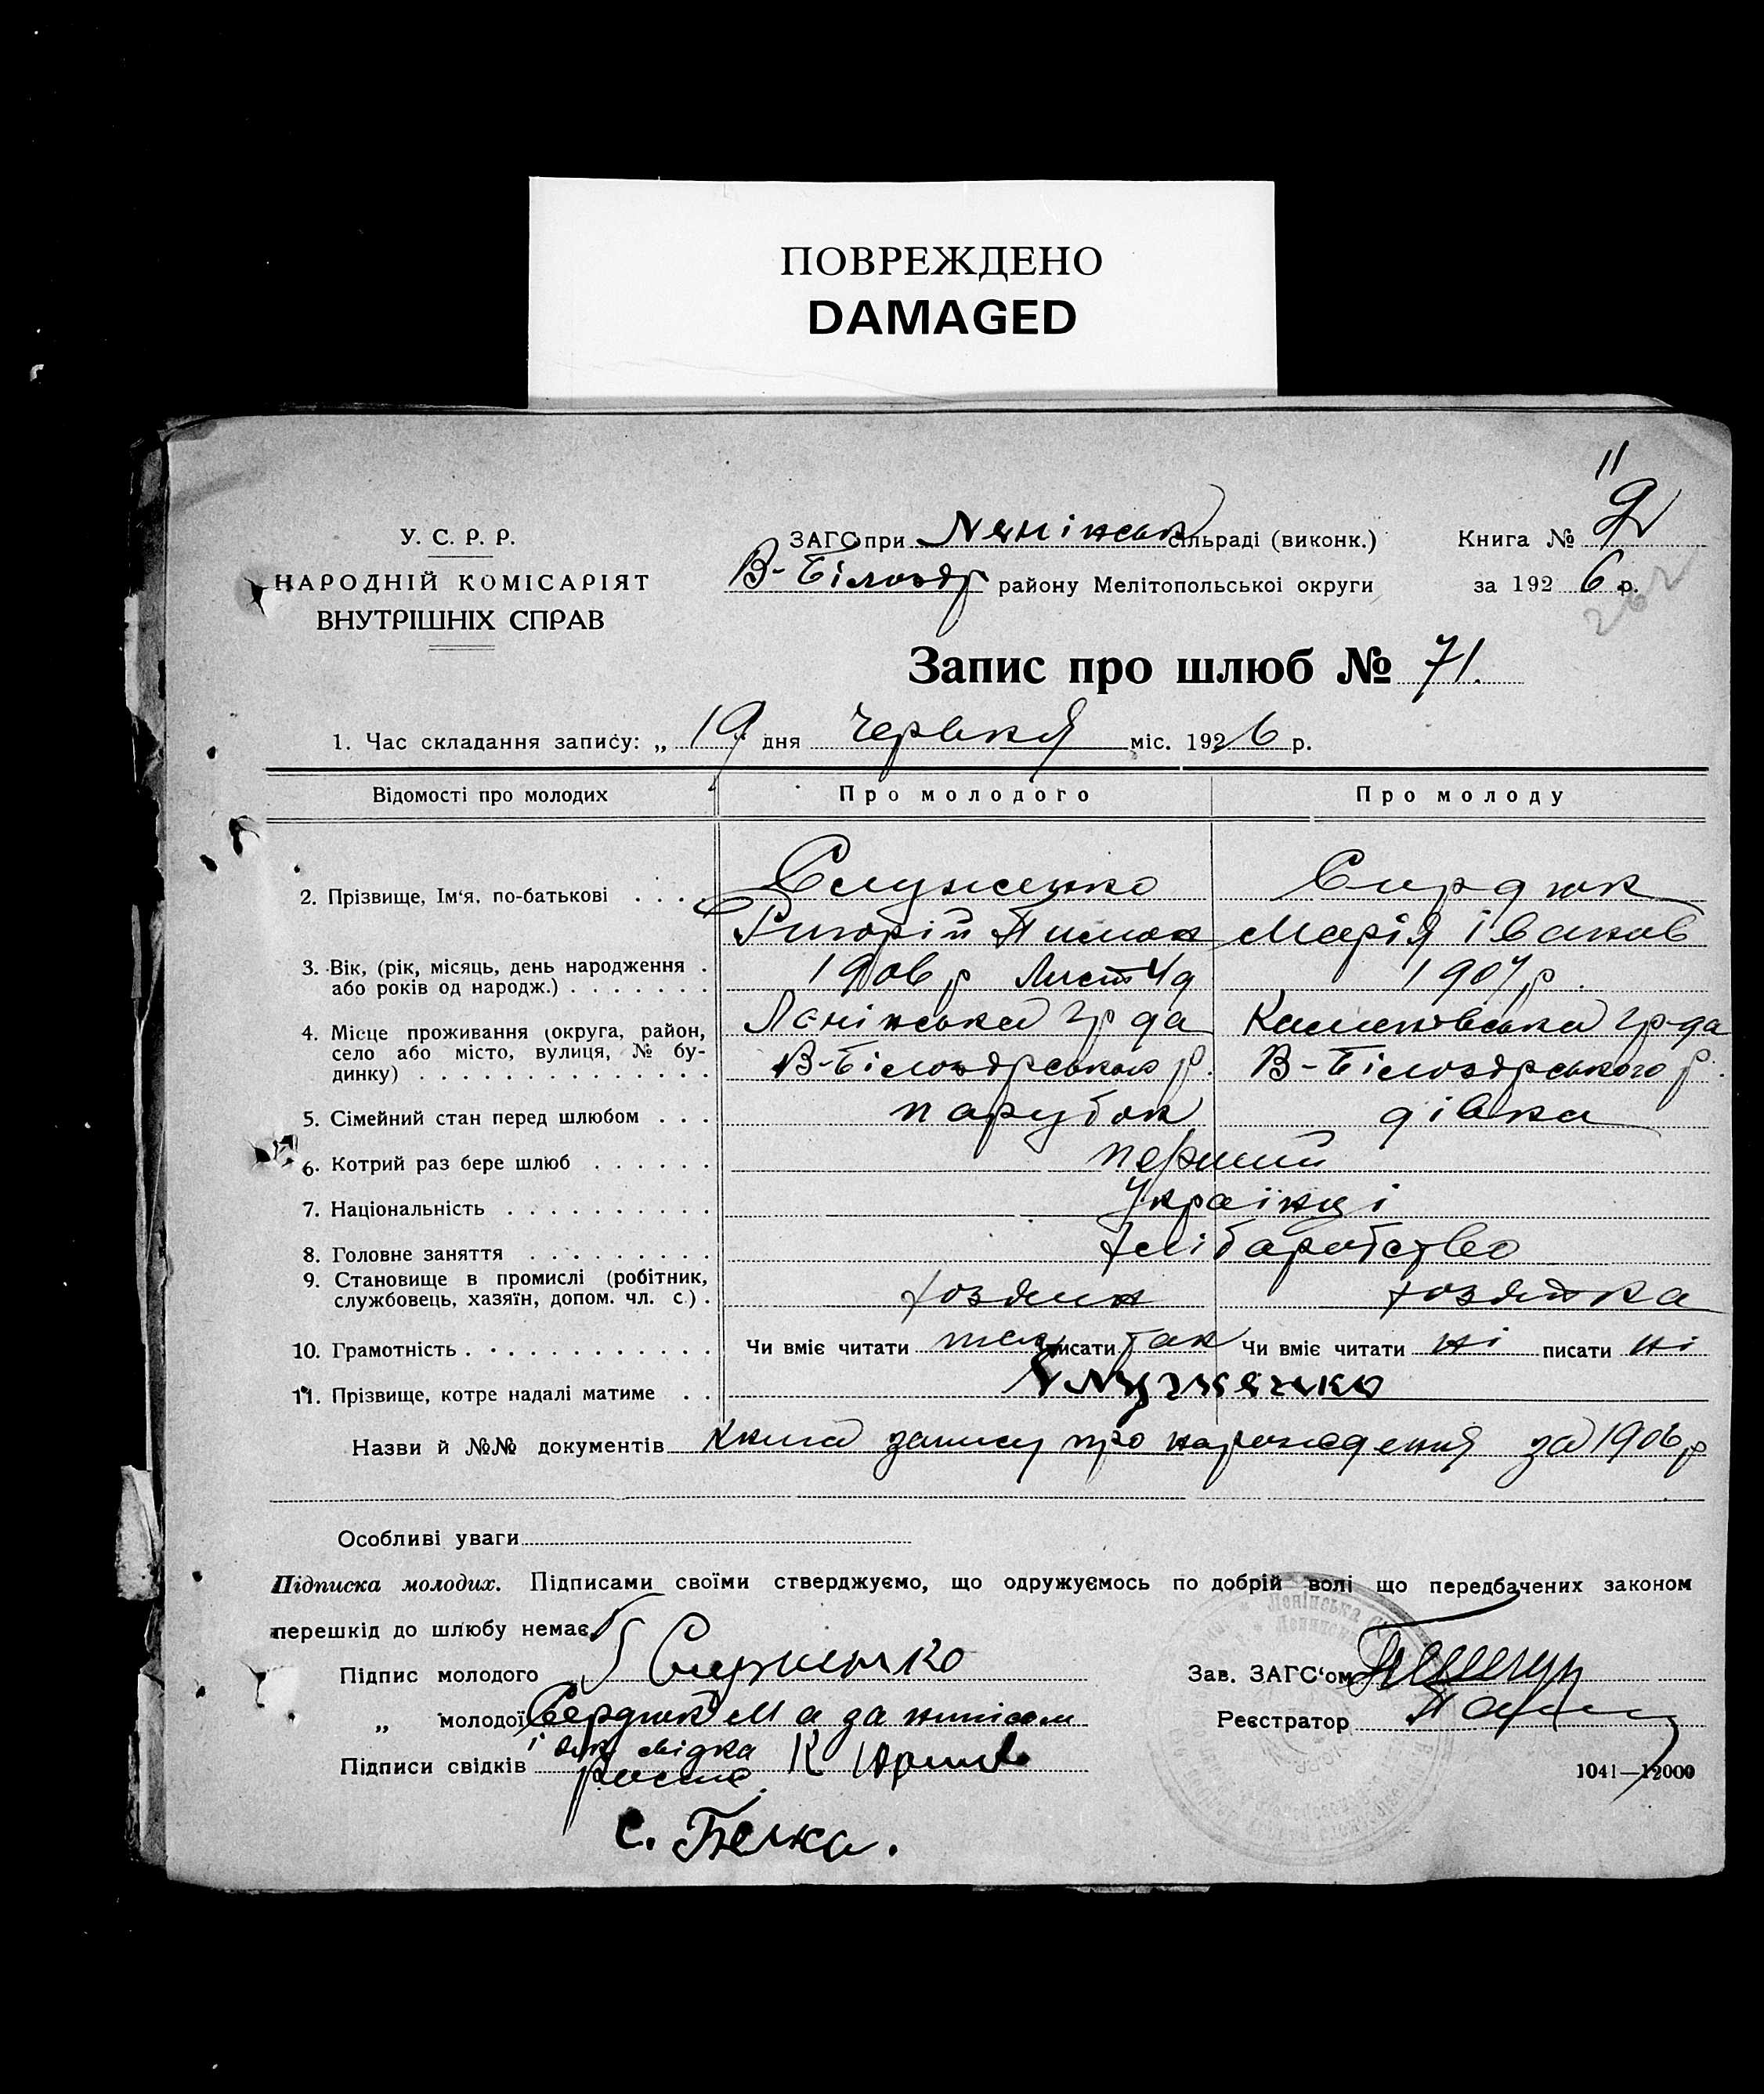 ПОВРЕЖДЕНО
DAMAGED
11
У. С. Р. Р.
НАРОДНІЙ КОМІСАРІЯТ
ВНУТРІШНІХ СПРАВ
ЗАГС при Ленінськ сільраді (виконк.)
В-Білозор району Мелітопольської округи
Книга №
за 1926 р.
262
Запис про шлюб № 71.
1. Час складання запису: „ 19 " дня червня міс. 1926 р.
Відомості про молодих Про молодого Про молоду
2. Прізвище, Ім'я, по-батькові Служенко Сирдюк
Григорій Пимон Марія Іванов
3. Вік, (рік, місяць, день народження або років од народж.) 1906 р Лист 4д 1907 р.
4. Місце проживання (округа, район, село або місто, вулиця, № будинку) Ленінська гр да Камековська гр-да
В-Білозорського р. В-Білозорського р.
5. Сімейний стан перед шлюбом парубок дівка
6. Котрий раз бере шлюб перший
7. Національність Українці
8. Головне заняття хлібаробство
9. Становище в промислі (робітник, службовець, хазяїн, допом. чл. с.) хозяин хозяйка
10. Грамотність Чи вміє читати так писати так Чи вміє читати ні писати ні
11. Прізвище, котре надалі матиме Служенко
Назви й №№ документів Книга запису про народження за 1906 р
Особливі уваги
Підписка молодих. Підписами своїми стверджуємо, що одружуємось по добрій волі що передбачених законом
перешкід до шлюбу немає.
Підпис молодого Г Служенко
Зав. ЗАГС'ом
„ молодої Сердюк М а за
Реєстратор
і свідка
Підписи свідків К
1041—12000
С. Белка.